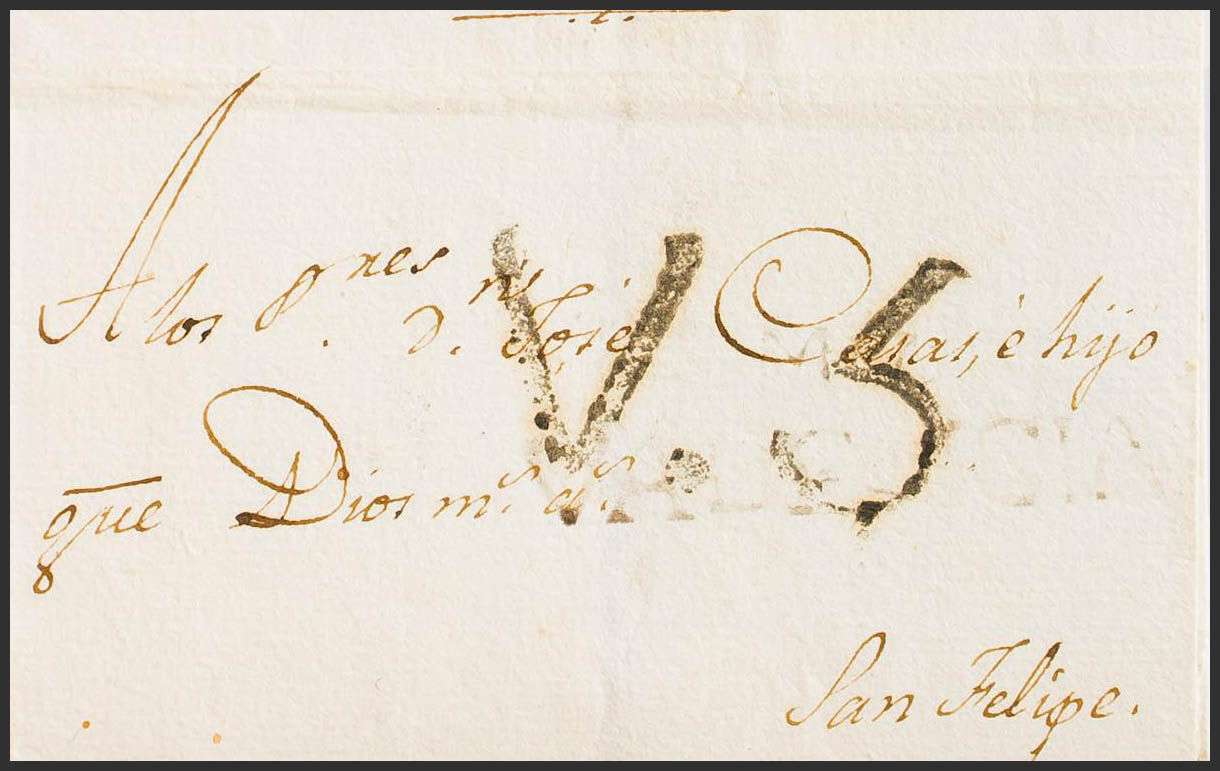 A los S.res D.n José Casas, é hijo
V.S
que Dios m.s a.s
San Felipe.